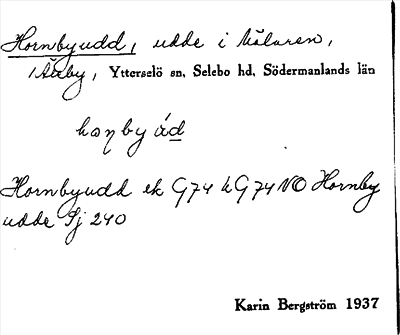 Hornbyudd, udde i Mälaren,
Åsby, Ytterselö sn, Selebo hd, Södermanlands län
hoɳby úd
Hornbyudd ek G74 kG74NO Hornby
udde Sj 240
Karin Bergström 1937